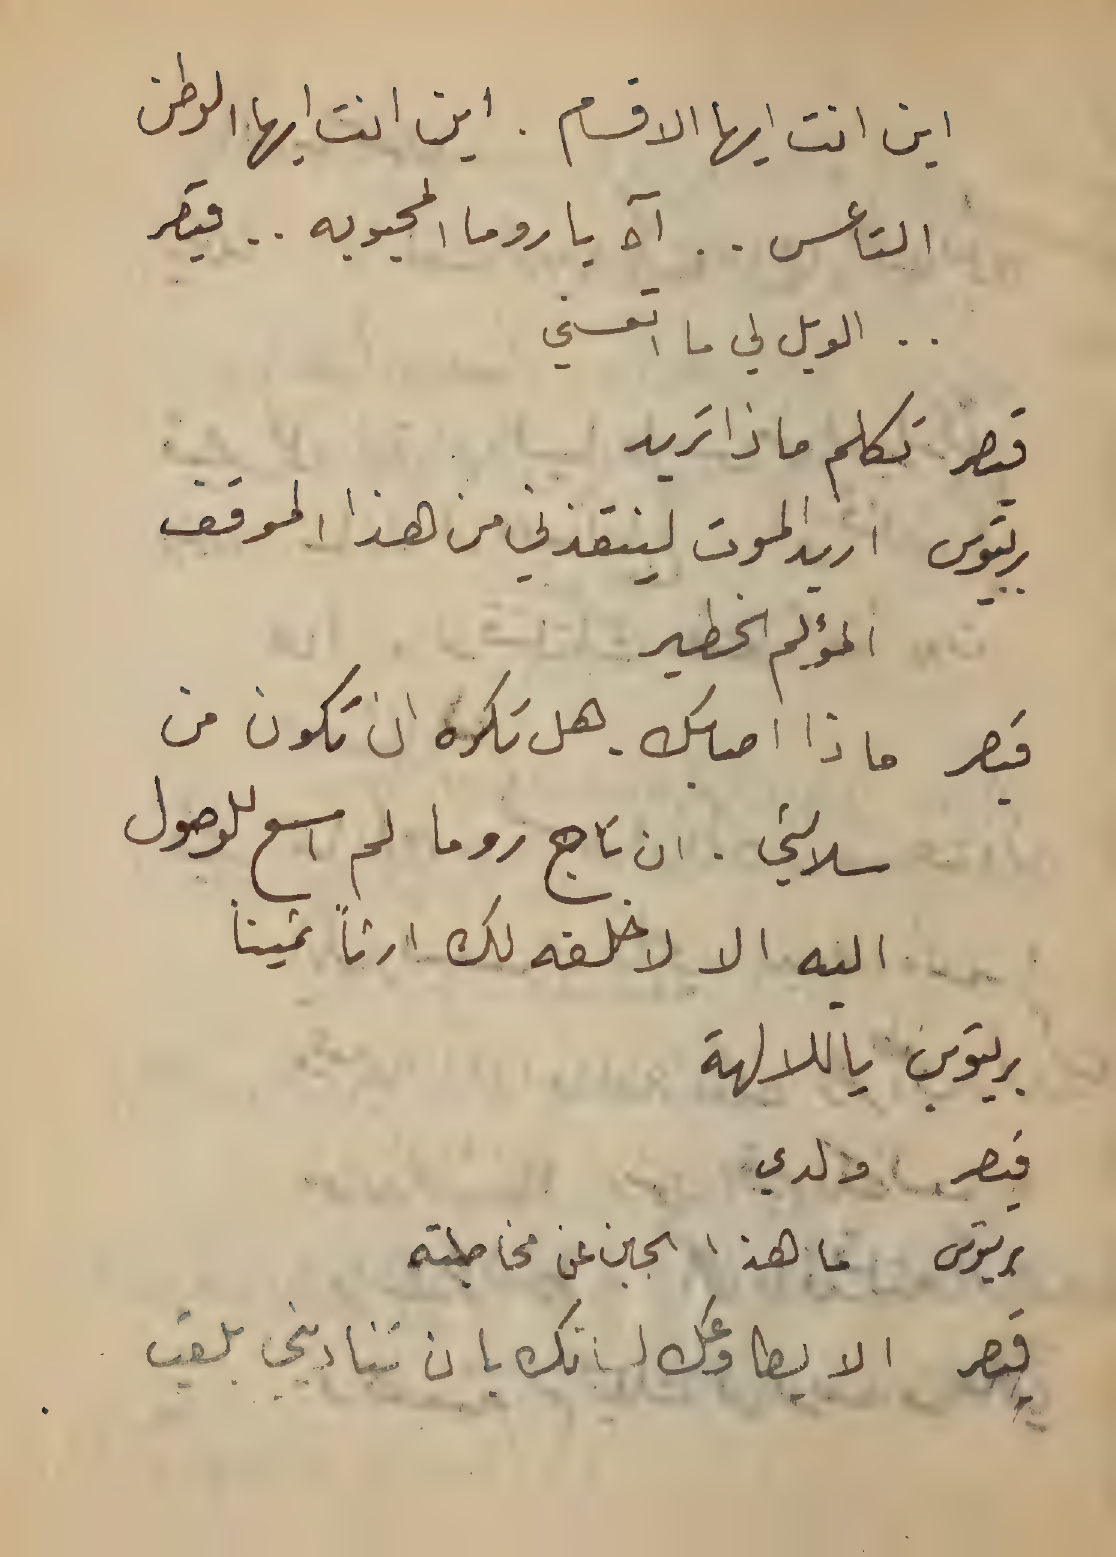 اين انت ايها الاقسام . اين انت ايها الوطن
التاعس .. آه يا روما المحبوبه .. قيصر
.. الويل لي ما اتعسني
قيصر تكلم ماذا تريد
بريتوس اريد الموت لينقذني من هذا الموقف
المؤلم الخطير
قيصر ماذا اصابك . هل تكره ان تكون من
سلالتي . ان تاج روما لم اسع للوصول
اليه الا لاخلفه لك ارثاً ثميناً
بريتوس ياللالهة
قيصر ولدي
بريتوس ما هذا الجبن عن مخاطبته
قيصر الا يطاوعك لسانك بان تناديني بلقب